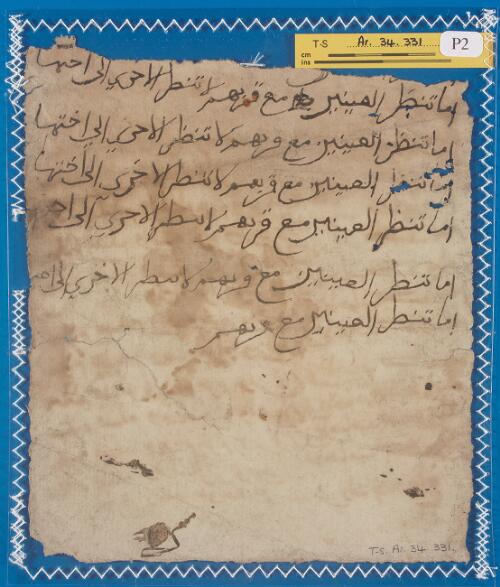 T-S Ar. 34. 331
P2
cm
ins
اما تنظر العينين مع قربهم لا تنظر الاخرى الى اختها
اما تنظر العينين مع قربهم لا تنظر الاخرى الى اختها
اما تنظر العينين مع قربهم لا تنظر الاخرى الى اختها
اما تنظر العينين مع قربهم لا تنظر الاخرى الى
اما تنظر العينين مع قربهم لا تنظر الاخرى الى
اما تنظر العينين مع قربهم
T-S. Ar. 34 331.